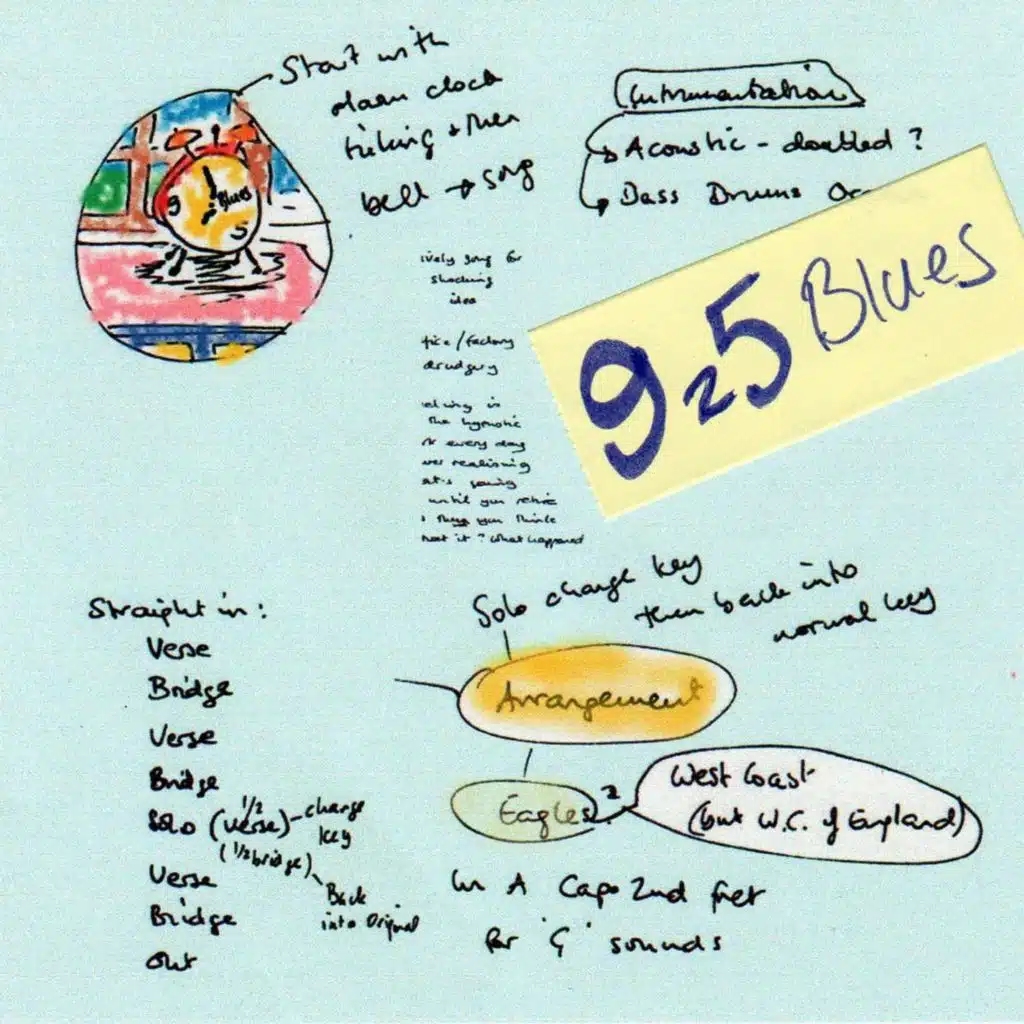 Start with
alarm clock
ticking + then
bell → song
9 Blues
5
Instrumentation
Acoustic - doubled ?
Bass Drums
925 Blues
ively song for
shocking
idea
fice / factory
drudgery
in
the hypnotic
every day
ver realising
at's going
until you retire
you think
it ? What happened
Solo change key
then back into
normal key
Arrangement
Eagles ?
West Coast
(but W.C. of England)
In A Capo 2nd fret
for 'G' sounds
Straight in :
Verse
Bridge
Verse
Bridge
Solo (1/2 verse) - change key
(1/2 bridge)
Back
into original
Verse
Bridge
Out